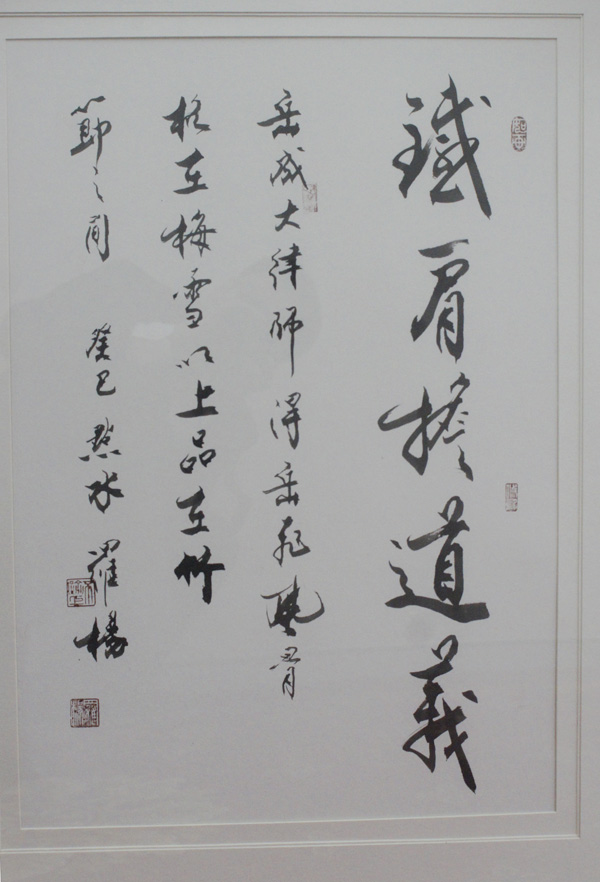 鐵肩擔道義
岳成大律師得岳飛風骨
格在梅雪以上品在竹
節之間 癸巳 羅楊